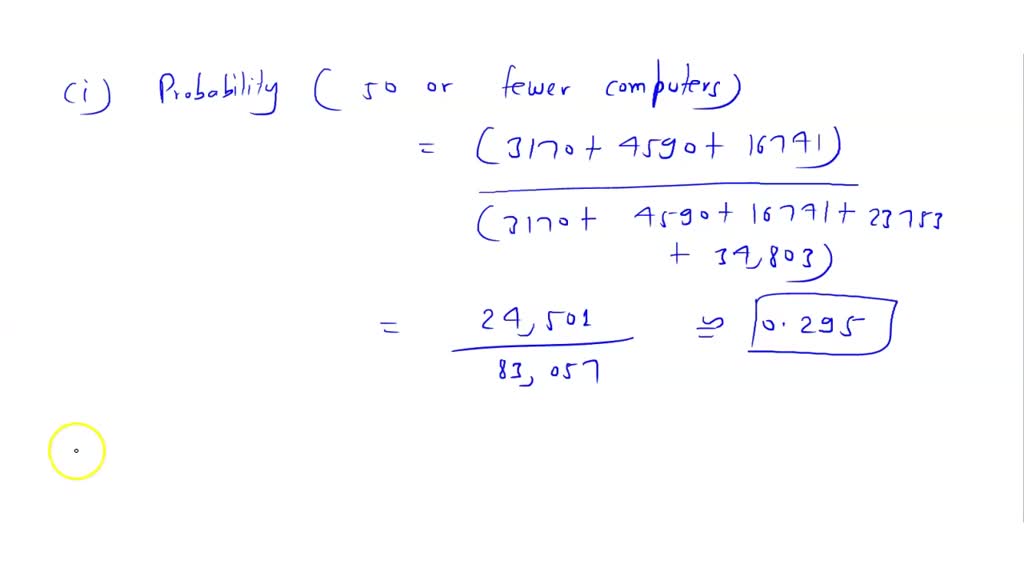 (i) Probability ( 50 or fewer computers)
= (3170 + 4590 + 16741)
(3170 + 4590 + 16741 + 23753
+ 34,803)
= 24,501 ≌ 0.295
83,057